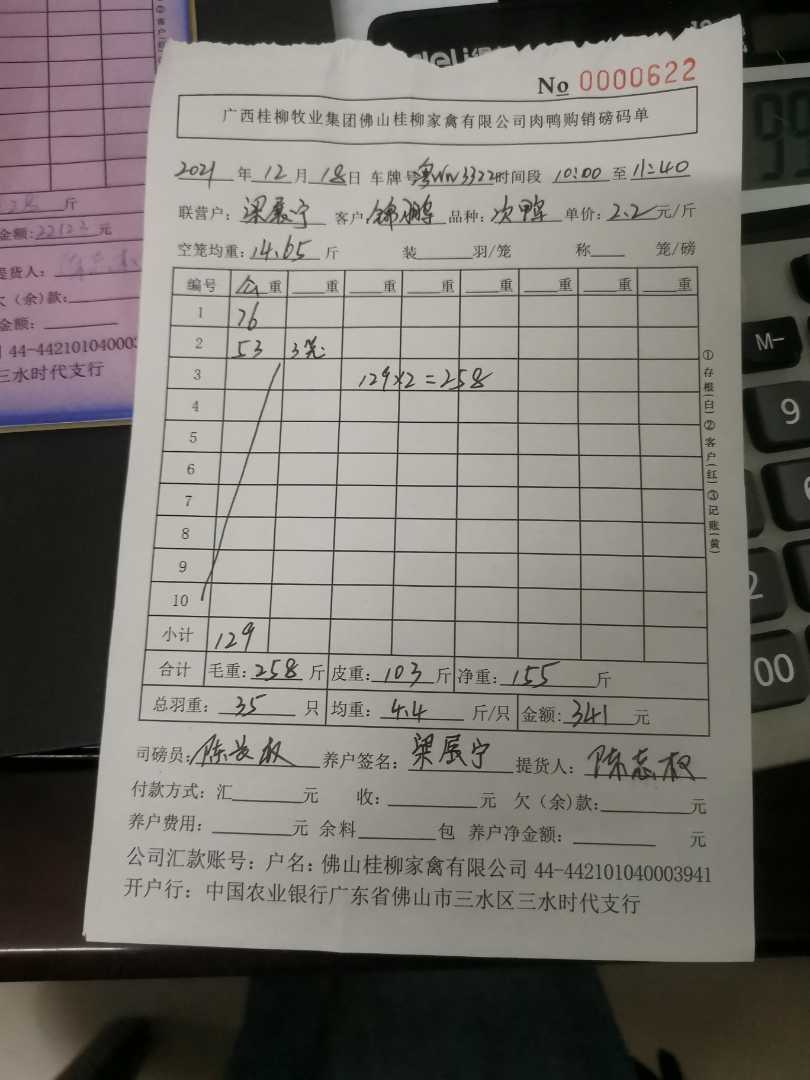 deli
No 0000622
广西桂柳牧业集团佛山桂柳家禽有限公司肉鸭购销磅码单
2021年12月18日 车牌号粤WW3322时间段 10:00 至 11:40
联营户:梁展宁 客户:锦鹏 品种:次鸭 单价:2.2元/斤
空笼均重:14.65斤 装____羽/笼 称____笼/磅
编号 公重 ____重 ____重 ____重 ____重 ____重 ____重 ____重
1 76
2 53 3笼
3 129×2=258
4
5
6
7
8
9
10
小计 129
合计 毛重:258斤 皮重:103斤 净重:155斤
总羽重:35只 均重:4.4斤/只 金额:341元
①存根(白)②客户(红)③记账(黄)
司磅员:陈志权 养户签名:梁展宁 提货人:陈志权
付款方式:汇____元 收:____元 欠(余)款:____元
养户费用:____元 余料____包 养户净金额:____元
公司汇款账号:户名:佛山桂柳家禽有限公司 44-442101040003941
开户行:中国农业银行广东省佛山市三水区三水时代支行
斤
金额:22122元
提货人:
欠(余)款:
金额:
44-442101040003
三水时代支行
M-
9
2
00